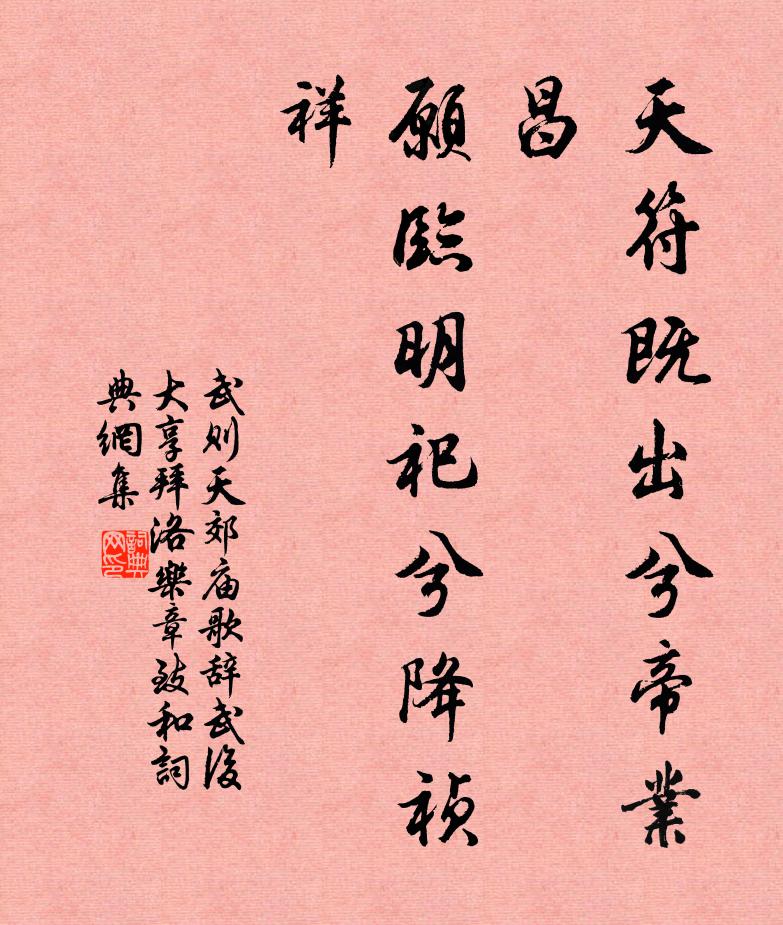 天符既出兮帝業
昌
願臨明祀兮降禎
祥
武則天郊庙歌辞武後
大享拜洛樂章致和詞
典網集
詞典
网印